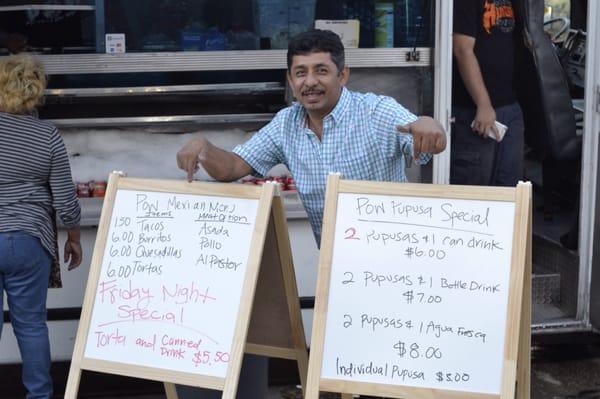 Pow Mexican Menu
Items
Meat Option
1.50 Tacos
6.00 Burritos
6.00 Quesadillas
6.00 Tortas
Asada
Pollo
Al Pastor
Friday Night
Special
Torta and Canned
Drink $5.50
Pow Pupusa Special
2 Pupusas & 1 can drink
$6.00
2 Pupusas & 1 Bottle Drink
$7.00
2 Pupusas & 1 Agua Fresca
$8.00
Individual Pupusa